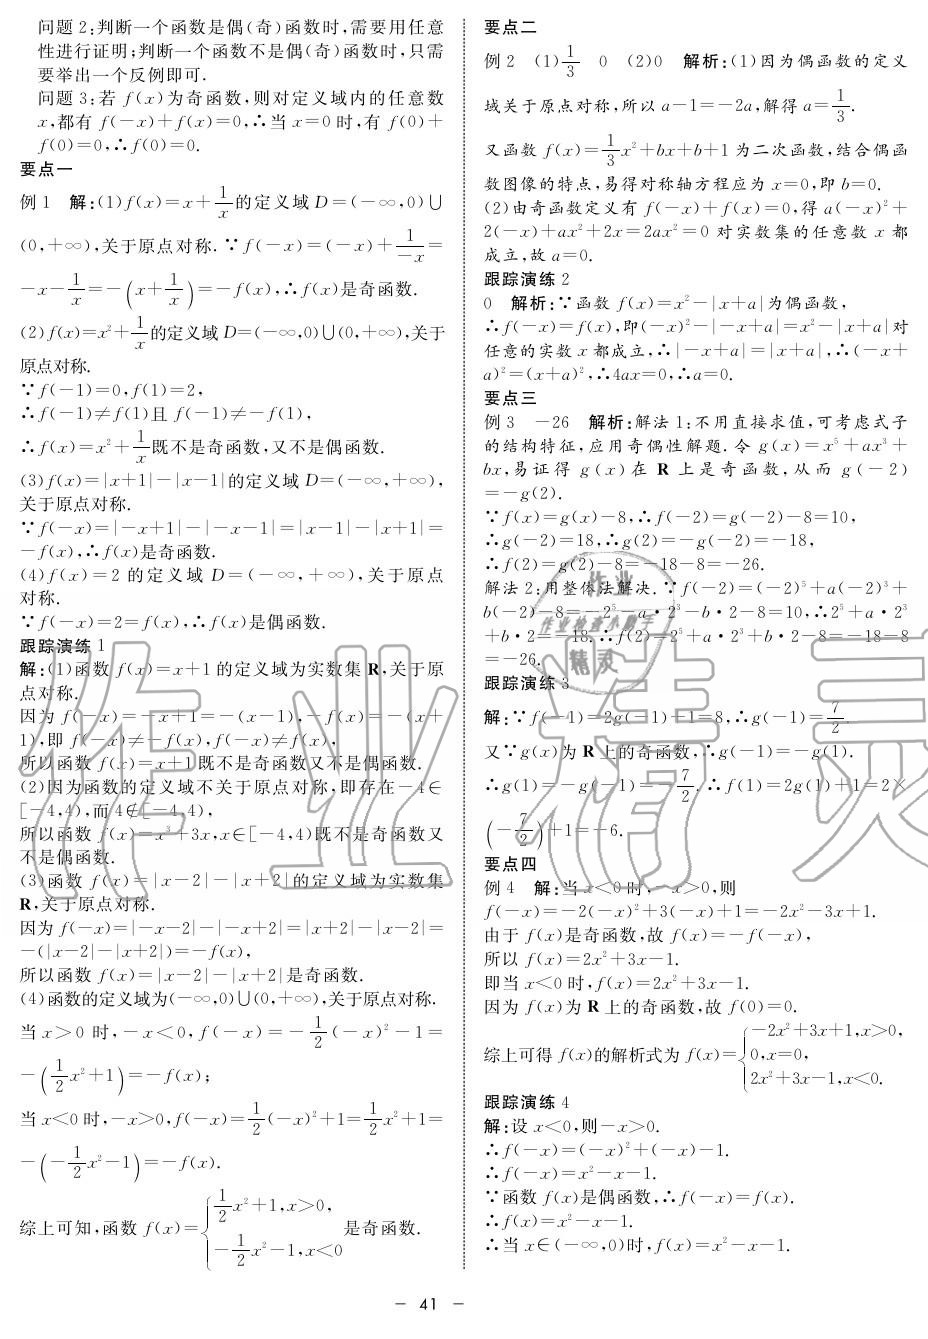 问题 2:判断一个函数是偶(奇)函数时,需要用任意
性进行证明;判断一个函数不是偶(奇)函数时,只需
要举出一个反例即可.
问题 3:若 f(x)为奇函数,则对定义域内的任意数
x,都有 f(-x)+f(x)=0,∴当 x=0 时,有 f(0)+
f(0)=0,∴f(0)=0.
要点一
例 1 解:(1)f(x)=x+1/x的定义域 D=(-∞,0)∪
(0,+∞),关于原点对称.∵f(-x)=(-x)+1/-x=
-x-1/x=-(x+1/x)=-f(x),∴f(x)是奇函数.
(2)f(x)=x²+1/x的定义域 D=(-∞,0)∪(0,+∞),关于
原点对称.
∵f(-1)=0,f(1)=2,
∴f(-1)≠f(1)且 f(-1)≠-f(1),
∴f(x)=x²+1/x既不是奇函数,又不是偶函数.
(3)f(x)=|x+1|-|x-1|的定义域 D=(-∞,+∞),
关于原点对称.
∵f(-x)=|-x+1|-|-x-1|=|x-1|-|x+1|=
-f(x),∴f(x)是奇函数.
(4)f(x)=2 的定义域 D=(-∞,+∞),关于原点
对称.
∵f(-x)=2=f(x),∴f(x)是偶函数.
跟踪演练 1
解:(1)函数 f(x)=x+1 的定义域为实数集 R,关于原
点对称.
因为 f(-x)=-x+1=-(x-1),-f(x)=-(x+
1),即 f(-x)≠-f(x),f(-x)≠f(x),
所以函数 f(x)=x+1 既不是奇函数又不是偶函数.
(2)因为函数的定义域不关于原点对称,即存在-4∈
[-4,4),而 4∉[-4,4),
所以函数 f(x)=x³+3x,x∈[-4,4)既不是奇函数又
不是偶函数.
(3)函数 f(x)=|x-2|-|x+2|的定义域为实数集
R,关于原点对称.
因为 f(-x)=|-x-2|-|-x+2|=|x+2|-|x-2|=
-(|x-2|-|x+2|)=-f(x),
所以函数 f(x)=|x-2|-|x+2|是奇函数.
(4)函数的定义域为(-∞,0)∪(0,+∞),关于原点对称.
当 x>0 时,-x<0,f(-x)=-1/2(-x)²-1=
-(1/2x²+1)=-f(x);
当 x<0 时,-x>0,f(-x)=1/2(-x)²+1=1/2x²+1=
-(-1/2x²-1)=-f(x).
综上可知,函数 f(x)={1/2x²+1,x>0, -1/2x²-1,x<0 是奇函数.
要点二
例 2 (1)1/3 0 (2)0 解析:(1)因为偶函数的定义
域关于原点对称,所以 a-1=-2a,解得 a=1/3.
又函数 f(x)=1/3x²+bx+b+1 为二次函数,结合偶函
数图像的特点,易得对称轴方程应为 x=0,即 b=0.
(2)由奇函数定义有 f(-x)+f(x)=0,得 a(-x)²+
2(-x)+ax²+2x=2ax²=0 对实数集的任意数 x 都
成立,故 a=0.
跟踪演练 2
0 解析:∵函数 f(x)=x²-|x+a|为偶函数,
∴f(-x)=f(x),即(-x)²-|-x+a|=x²-|x+a|对
任意的实数 x 都成立,∴|-x+a|=|x+a|,∴(-x+
a)²=(x+a)²,∴4ax=0,∴a=0.
要点三
例 3 -26 解析:解法 1:不用直接求值,可考虑式子
的结构特征,应用奇偶性解题.令 g(x)=x⁵+ax³+
bx,易证得 g(x)在 R 上是奇函数,从而 g(-2)
=-g(2).
∵f(x)=g(x)-8,∴f(-2)=g(-2)-8=10,
∴g(-2)=18,∴g(2)=-g(-2)=-18,
∴f(2)=g(2)-8=-18-8=-26.
解法 2:用整体法解决.∵f(-2)=(-2)⁵+a(-2)³+
b(-2)-8=-2⁵-a·2³-b·2-8=10,∴2⁵+a·2³
+b·2=-18.∴f(2)=2⁵+a·2³+b·2-8=-18-8
=-26.
跟踪演练 3
解:∵f(-1)=2g(-1)+1=8,∴g(-1)=7/2.
又∵g(x)为 R 上的奇函数,∴g(-1)=-g(1).
∴g(1)=-g(-1)=-7/2.∴f(1)=2g(1)+1=2×
(-7/2)+1=-6.
要点四
例 4 解:当 x<0 时,-x>0,则
f(-x)=-2(-x)²+3(-x)+1=-2x²-3x+1.
由于 f(x)是奇函数,故 f(x)=-f(-x),
所以 f(x)=2x²+3x-1.
即当 x<0 时,f(x)=2x²+3x-1.
因为 f(x)为 R 上的奇函数,故 f(0)=0.
综上可得 f(x)的解析式为 f(x)={-2x²+3x+1,x>0, 0,x=0, 2x²+3x-1,x<0.
跟踪演练 4
解:设 x<0,则-x>0.
∴f(-x)=(-x)²+(-x)-1.
∴f(-x)=x²-x-1.
∵函数 f(x)是偶函数,∴f(-x)=f(x).
∴f(x)=x²-x-1.
∴当 x∈(-∞,0)时,f(x)=x²-x-1.
- 41 -
作业精灵
作业
作业检查小助手
精灵